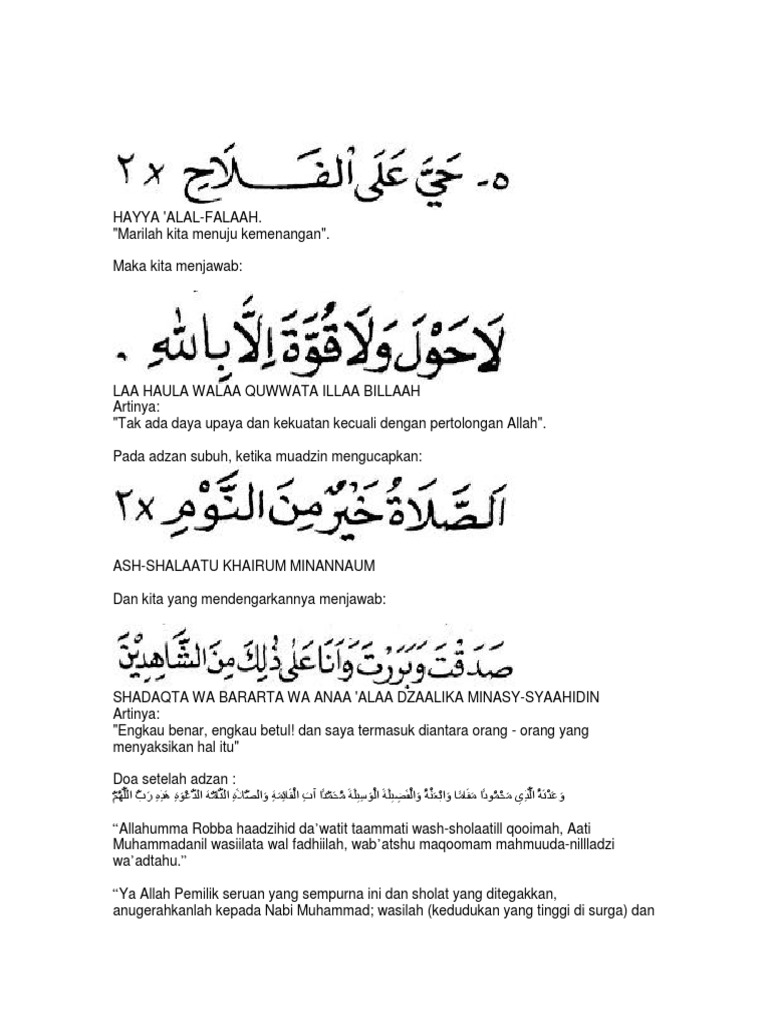 ٥- حَيَّ عَلَى الْفَـــلَاحِ ٢x
HAYYA 'ALAL-FALAAH.
"Marilah kita menuju kemenangan".
Maka kita menjawab:
لَا حَوْلَ وَلَا قُوَّةَ اِلَّا بِاللهِ .
LAA HAULA WALAA QUWWATA ILLAA BILLAAH
Artinya:
"Tak ada daya upaya dan kekuatan kecuali dengan pertolongan Allah".
Pada adzan subuh, ketika muadzin mengucapkan:
اَلصَّلَاةُ خَيْرٌ مِنَ النَّوْمِ ٢x
ASH-SHALAATU KHAIRUM MINANNAUM
Dan kita yang mendengarkannya menjawab:
صَدَقْتَ وَبَرَرْتَ وَاَنَا عَلٰى ذٰلِكَ مِنَ الشَّاهِدِيْنَ
SHADAQTA WA BARARTA WA ANAA 'ALAA DZAALIKA MINASY-SYAAHIDIN
Artinya:
"Engkau benar, engkau betul! dan saya termasuk diantara orang - orang yang
menyaksikan hal itu"
Doa setelah adzan :
وَعَدْتَهُ الَّذِي مَحْمُودًا مَقَامًا وَابْعَثْهُ وَالْفَضِيلَةَ الْوَسِيلَةَ مُحَمَّدًا آتِ الْقَائِمَةِ وَالصَّلَاةِ التَّامَّةِ الدَّعْوَةِ هَذِهِ رَبَّ اللَّهُمَّ
“Allahumma Robba haadzihid da’watit taammati wash-sholaatill qooimah, Aati
Muhammadanil wasiilata wal fadhiilah, wab’atshu maqoomam mahmuuda-nillladzi
wa’adtahu.”
“Ya Allah Pemilik seruan yang sempurna ini dan sholat yang ditegakkan,
anugerahkanlah kepada Nabi Muhammad; wasilah (kedudukan yang tinggi di surga) dan